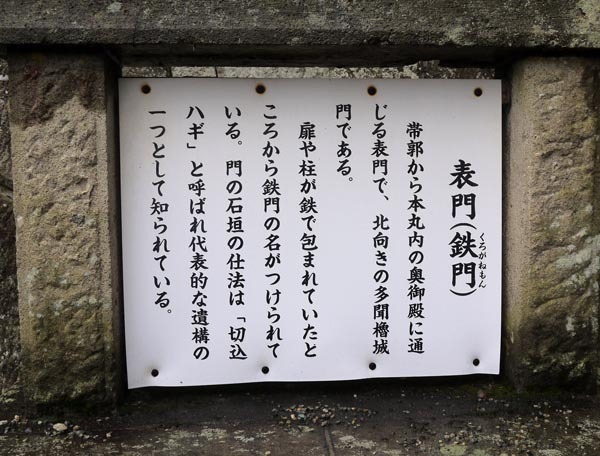 表門(鉄門)
くろがねもん
帯郭から本丸内の奥御殿に通
じる表門で、北向きの多聞櫓城
門である。
扉や柱が鉄で包まれていたと
ころから鉄門の名がつけられて
いる。門の石垣の仕法は「切込
ハギ」と呼ばれ代表的な遺構の
一つとして知られている。